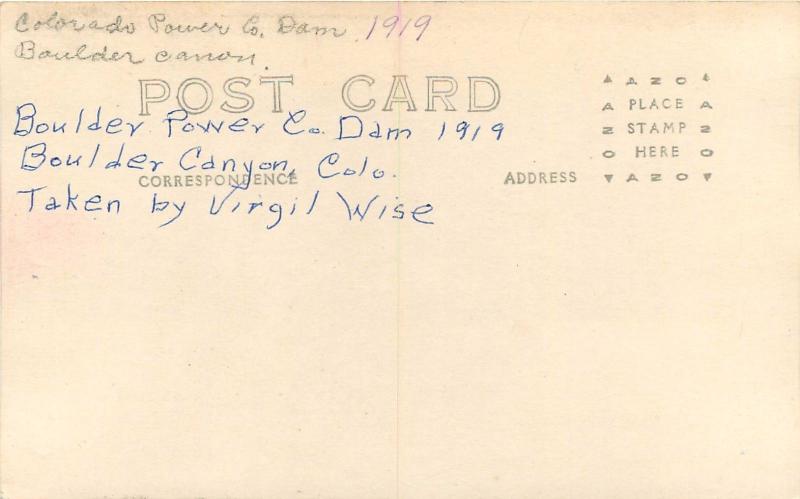 Colorado Power Co. Dam 1919
Boulder canon.
POST CARD
Boulder Power Co. Dam 1919
Boulder Canyon, Colo.
CORRESPONDENCE
Taken by Virgil Wise
ADDRESS
AZO
PLACE
STAMP
HERE
AZO
AZO
AZO